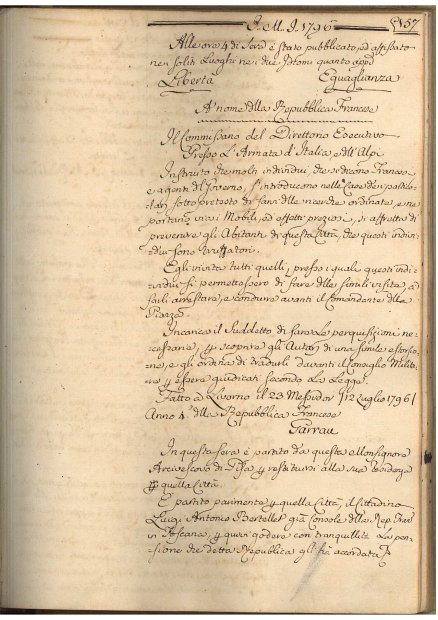 I. M. I. 1796
157
Alle ore 4 di Sera è stato pubblicato, ed affissato
nei soliti Luoghi nei due Idiomi quanto app.º
Libertà Eguaglianza
A nome della Repubblica Francese
Il Commissario del Direttorio Esecutivo
Presso L'Armata d'Italia e dell'Alpi
Instruito che molti individui, che si dicono Francesi,
e agenti del Governo, s'introducono nelle Case dei particolari
sotto pretesto di farvi delle ricerche ordinate, e ne
portano via i Mobili, ed effetti preziosi, si affretta di
prevenire gli Abitanti di questa Città, che questi indivi-
dui sono truffatori.
Egli invita tutti quelli, presso i quali questi indi-
vidui si permettessero di fare delle simili visite, a
farli arrestare, e condurre avanti il Comandante della
Piazza.
Incarica il Suddetto di fare Le perquisizioni ne-
cessarie, p scoprire gli Autori di una simile estorsio-
ne, e gli ordina di tradurli davanti il Consiglio Milita-
re p essere giudicati secondo La Legge.
Fatto a Livorno il 23 Messidor / 12 Luglio 1796 /
Anno 4º della Repubblica Francese
Garrau
In questa sera è partito da questa Monsignore
Arcivescovo di Pisa p restituirsi alla sua residenza
quella Città.
È partito parimente p quella Città, il Cittadino
Luigi Antonio Bertellet già Console della Rep. Fran
in Toscana, p quivi godere con tranquillità La pen-
sione che detta Repubblica gli ha accordata